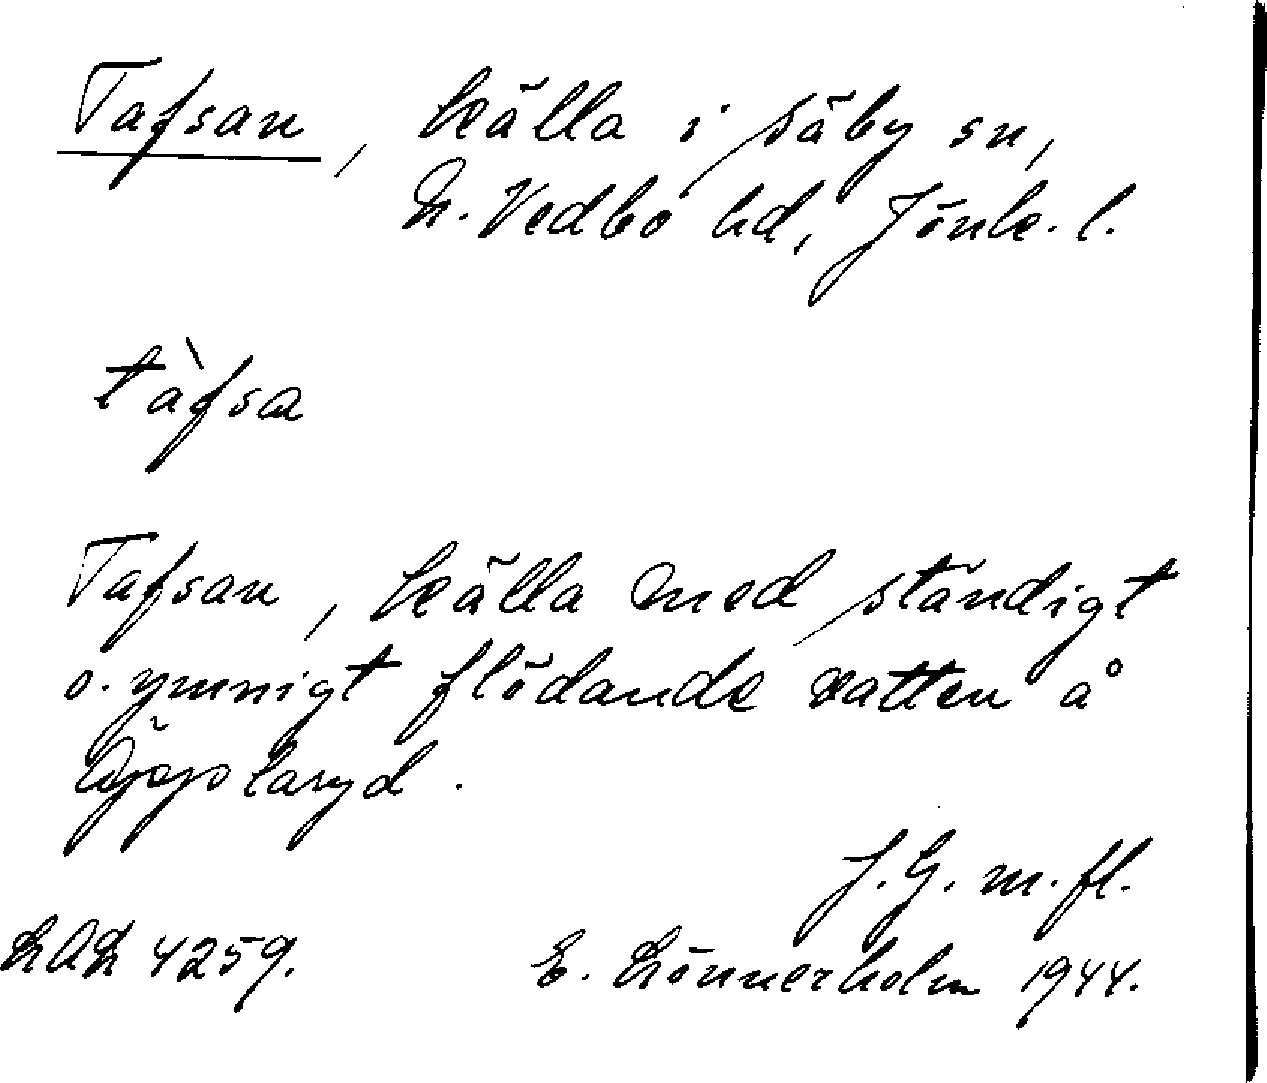 Tafsan, källa i Säby sn,
N. Vedbo hd, Jönk. l.
tàfsa
Tafsan, källa med ständigt
o. ymnigt flödande vatten å
J. G. m. fl.
LAL 4259. E. Lönnerholm 1944.